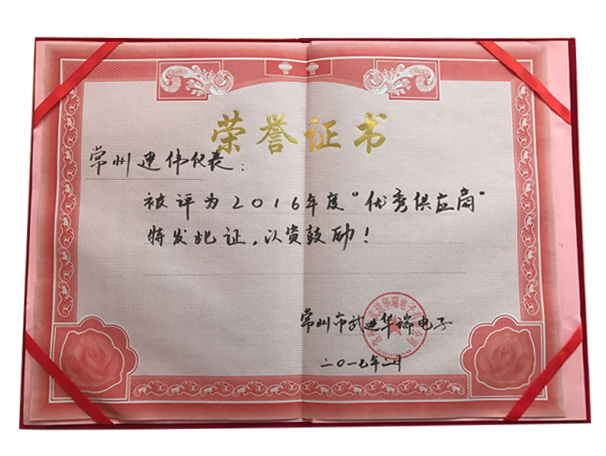 荣誉证书
常州建伟仪表：
被评为2016年度“优秀供应商”
特发此证，以资鼓励！
常州市武进华瑞电子
二〇一七年二月